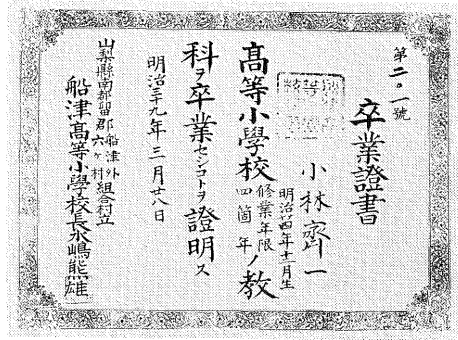 第二〇一號
卒業證書
小林齊一
明治廿四年十一月生
高等小學校修業年限四箇年ノ教
科ヲ卒業セシコトヲ證明ス
明治三十九年三月廿八日
山梨縣南都留郡船津外六ヶ村組合村立
船津高等小學校長水嶋熊雄